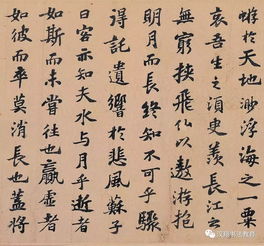 蝣於天地渺浮海之一粟
哀吾生之須臾羨長江之
無窮挾飛仙以遨游抱
明月而長終知不可乎驟
得託遺響於悲風蘇子
曰客亦知夫水与月乎逝者
如斯而未嘗往也贏虛者
如彼而卒莫消長也蓋將
汉翔书法教育